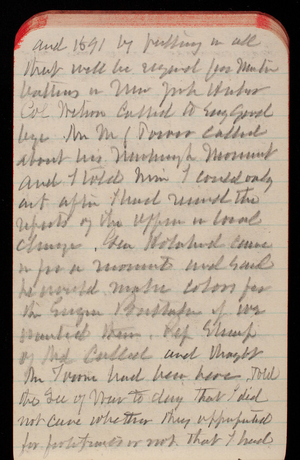 and 1891 by putting in all
that will be required for Mortar
batteries in New York Harbor
Col Wilson called to say good
bye. Mr M J Power called
about his Newburgh Monument
and I told him I could only
act after I had received the
reports of the officer in local
charge. Gen Holabird came
in for a moment and said
he would make colors for
the Engineer Battalion if we
wanted them. Rep
of Md called and thought
Mr Toome had been here. Told
the Sec of War to day that I did
not care whether they appropriated
for fortifications or not that I had